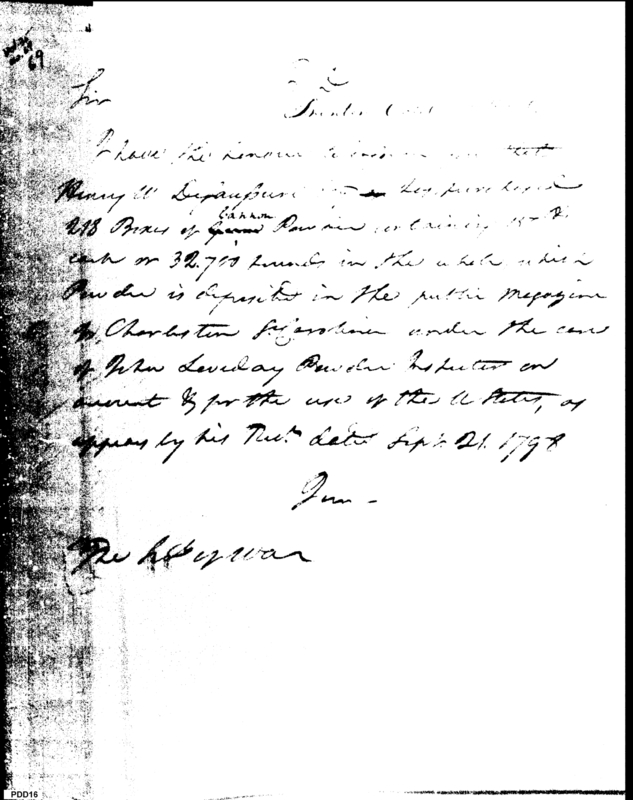 69
Sir
I have the honour to inform you that
Henry W Desaussure has purchased
218 Boxes of Cannon Powder containing
each or 32.700 pounds in the whole which
Powder is deposited in the public Magazine
in Charleston So Carolina under the care
of John Loveday Powder Inspector on
account & for the use of the U States, as
appears by his Rect. dated Sept. 21. 1798
I am -
The Secy War
PDD16